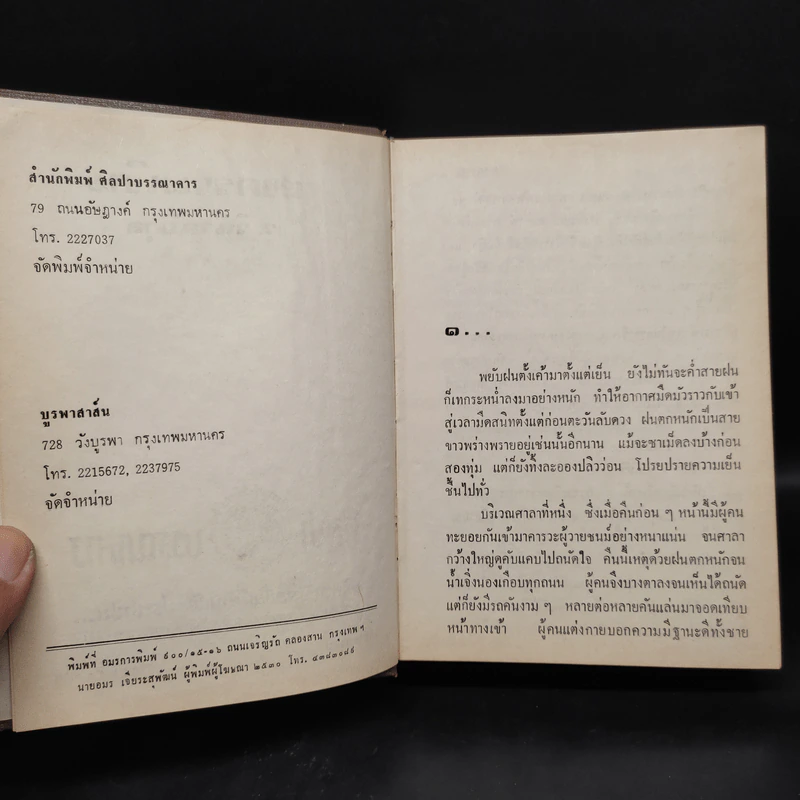 สำนักพิมพ์ ศิลปาบรรณาคาร
79 ถนนอัษฎางค์ กรุงเทพมหานคร
โทร. 2227037
จัดพิมพ์จำหน่าย
บูรพาสาส์น
728 วังบูรพา กรุงเทพมหานคร
โทร. 2215672, 2237975
จัดจำหน่าย
พิมพ์ที่ อมรการพิมพ์ ๙๐๐/๑๕-๑๖ ถนนเจริญรัถ คลองสาน กรุงเทพฯ
นายอมร เจียระสุพัฒน์ ผู้พิมพ์ผู้โฆษณา ๒๕๓๐ โทร. ๔๓๘๓๐๘๖
๑...
พยับฝนตั้งเค้ามาตั้งแต่เย็น ยังไม่ทันจะค่ำสายฝน
ก็เทกระหน่ำลงมาอย่างหนัก ทำให้อากาศมืดมัวราวกับเข้า
สู่เวลามืดสนิทตั้งแต่ก่อนตะวันลับดวง ฝนตกหนักเป็นสาย
ขาวพร่างพรายอยู่เช่นนั้นอีกนาน แม้จะซาเม็ดลงบ้างก่อน
สองทุ่ม แต่ก็ยังทิ้งละอองปลิวว่อน โปรยปรายความเย็น
ชื้นไปทั่ว
บริเวณศาลาที่หนึ่ง ซึ่งเมื่อคืนก่อน ๆ หน้านี้มีผู้คน
ทะยอยกันเข้ามาคารวะผู้วายชนม์อย่างหนาแน่น จนศาลา
กว้างใหญ่ดูคับแคบไปถนัดใจ คืนนี้เหตุด้วยฝนตกหนักจน
น้ำเจิ่งนองเกือบทุกถนน ผู้คนจึงบางตาลงจนเห็นได้ถนัด
แต่ก็ยังมีรถคันงาม ๆ หลายต่อหลายคันแล่นมาจอดเทียบ
หน้าทางเข้า ผู้คนแต่งกายบอกความมีฐานะดีทั้งชาย